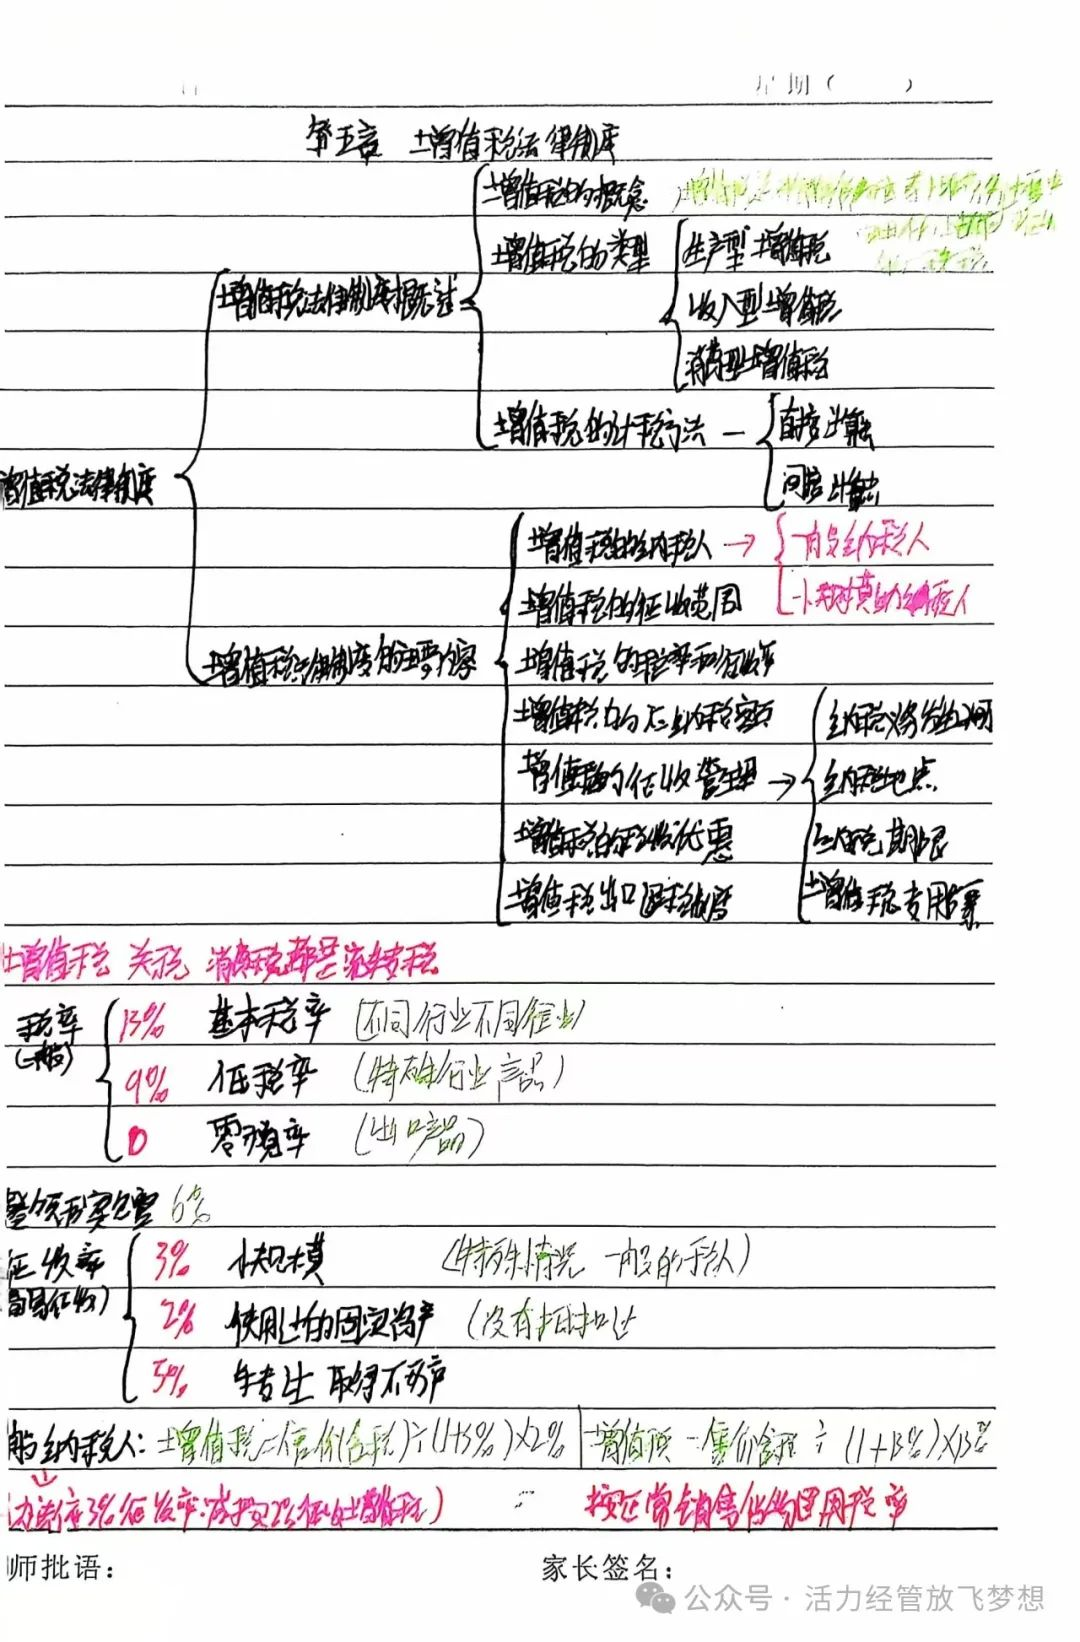 星期（ ）
第五章 增值税法律制度
增值税的概念
增值税的类型
生产型增值税
收入型增值税
消费型增值税
增值税法律制度概述
增值税的计税方法 —
直接计算法
间接计算法
增值税法律制度
增值税的纳税人 →
一般纳税人
小规模纳税人
增值税的征收范围
增值税法律制度的主要内容
增值税的税率和征收率
增值税的应纳税额
增值税的征收管理 →
纳税义务发生时间
纳税地点
纳税期限
增值税专用发票
增值税的税收优惠
增值税出口退税制度
增值税 关税 消费税都是流转税
税率（一般）
13% 基本税率（不同行业不同行业）
9% 低税率（特殊行业产品）
0 零税率（出口产品）
6%
征收率
3% 小规模（特殊情况 一般纳税人）
2% 使用过的固定资产（没有抵扣过
5% 取得不动产
般纳税人：增值税=售价(含税)÷(1+3%)×2%
增值税=售价含税÷(1+13%)×13%
按正常销售货物适用税率
师批语：
家长签名：
公众号·活力经管放飞梦想